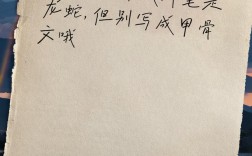 龙蛇,但别写成甲骨
文哦